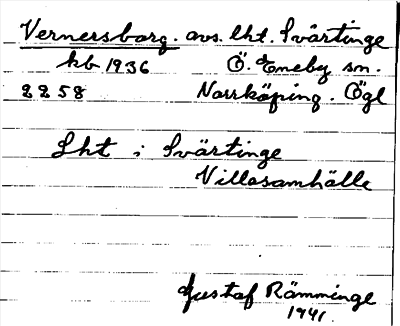 Vernersborg. avs. lht. Svärtinge
kb 1936 Ö. Eneby sn.
8858 Norrköping. Ögl
Lht i Svärtinge
Villasamhälle
Gustaf Rämminge
1941.